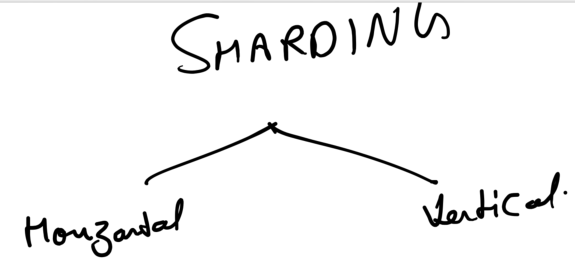 SHARDING
Horizontal
Vertical.